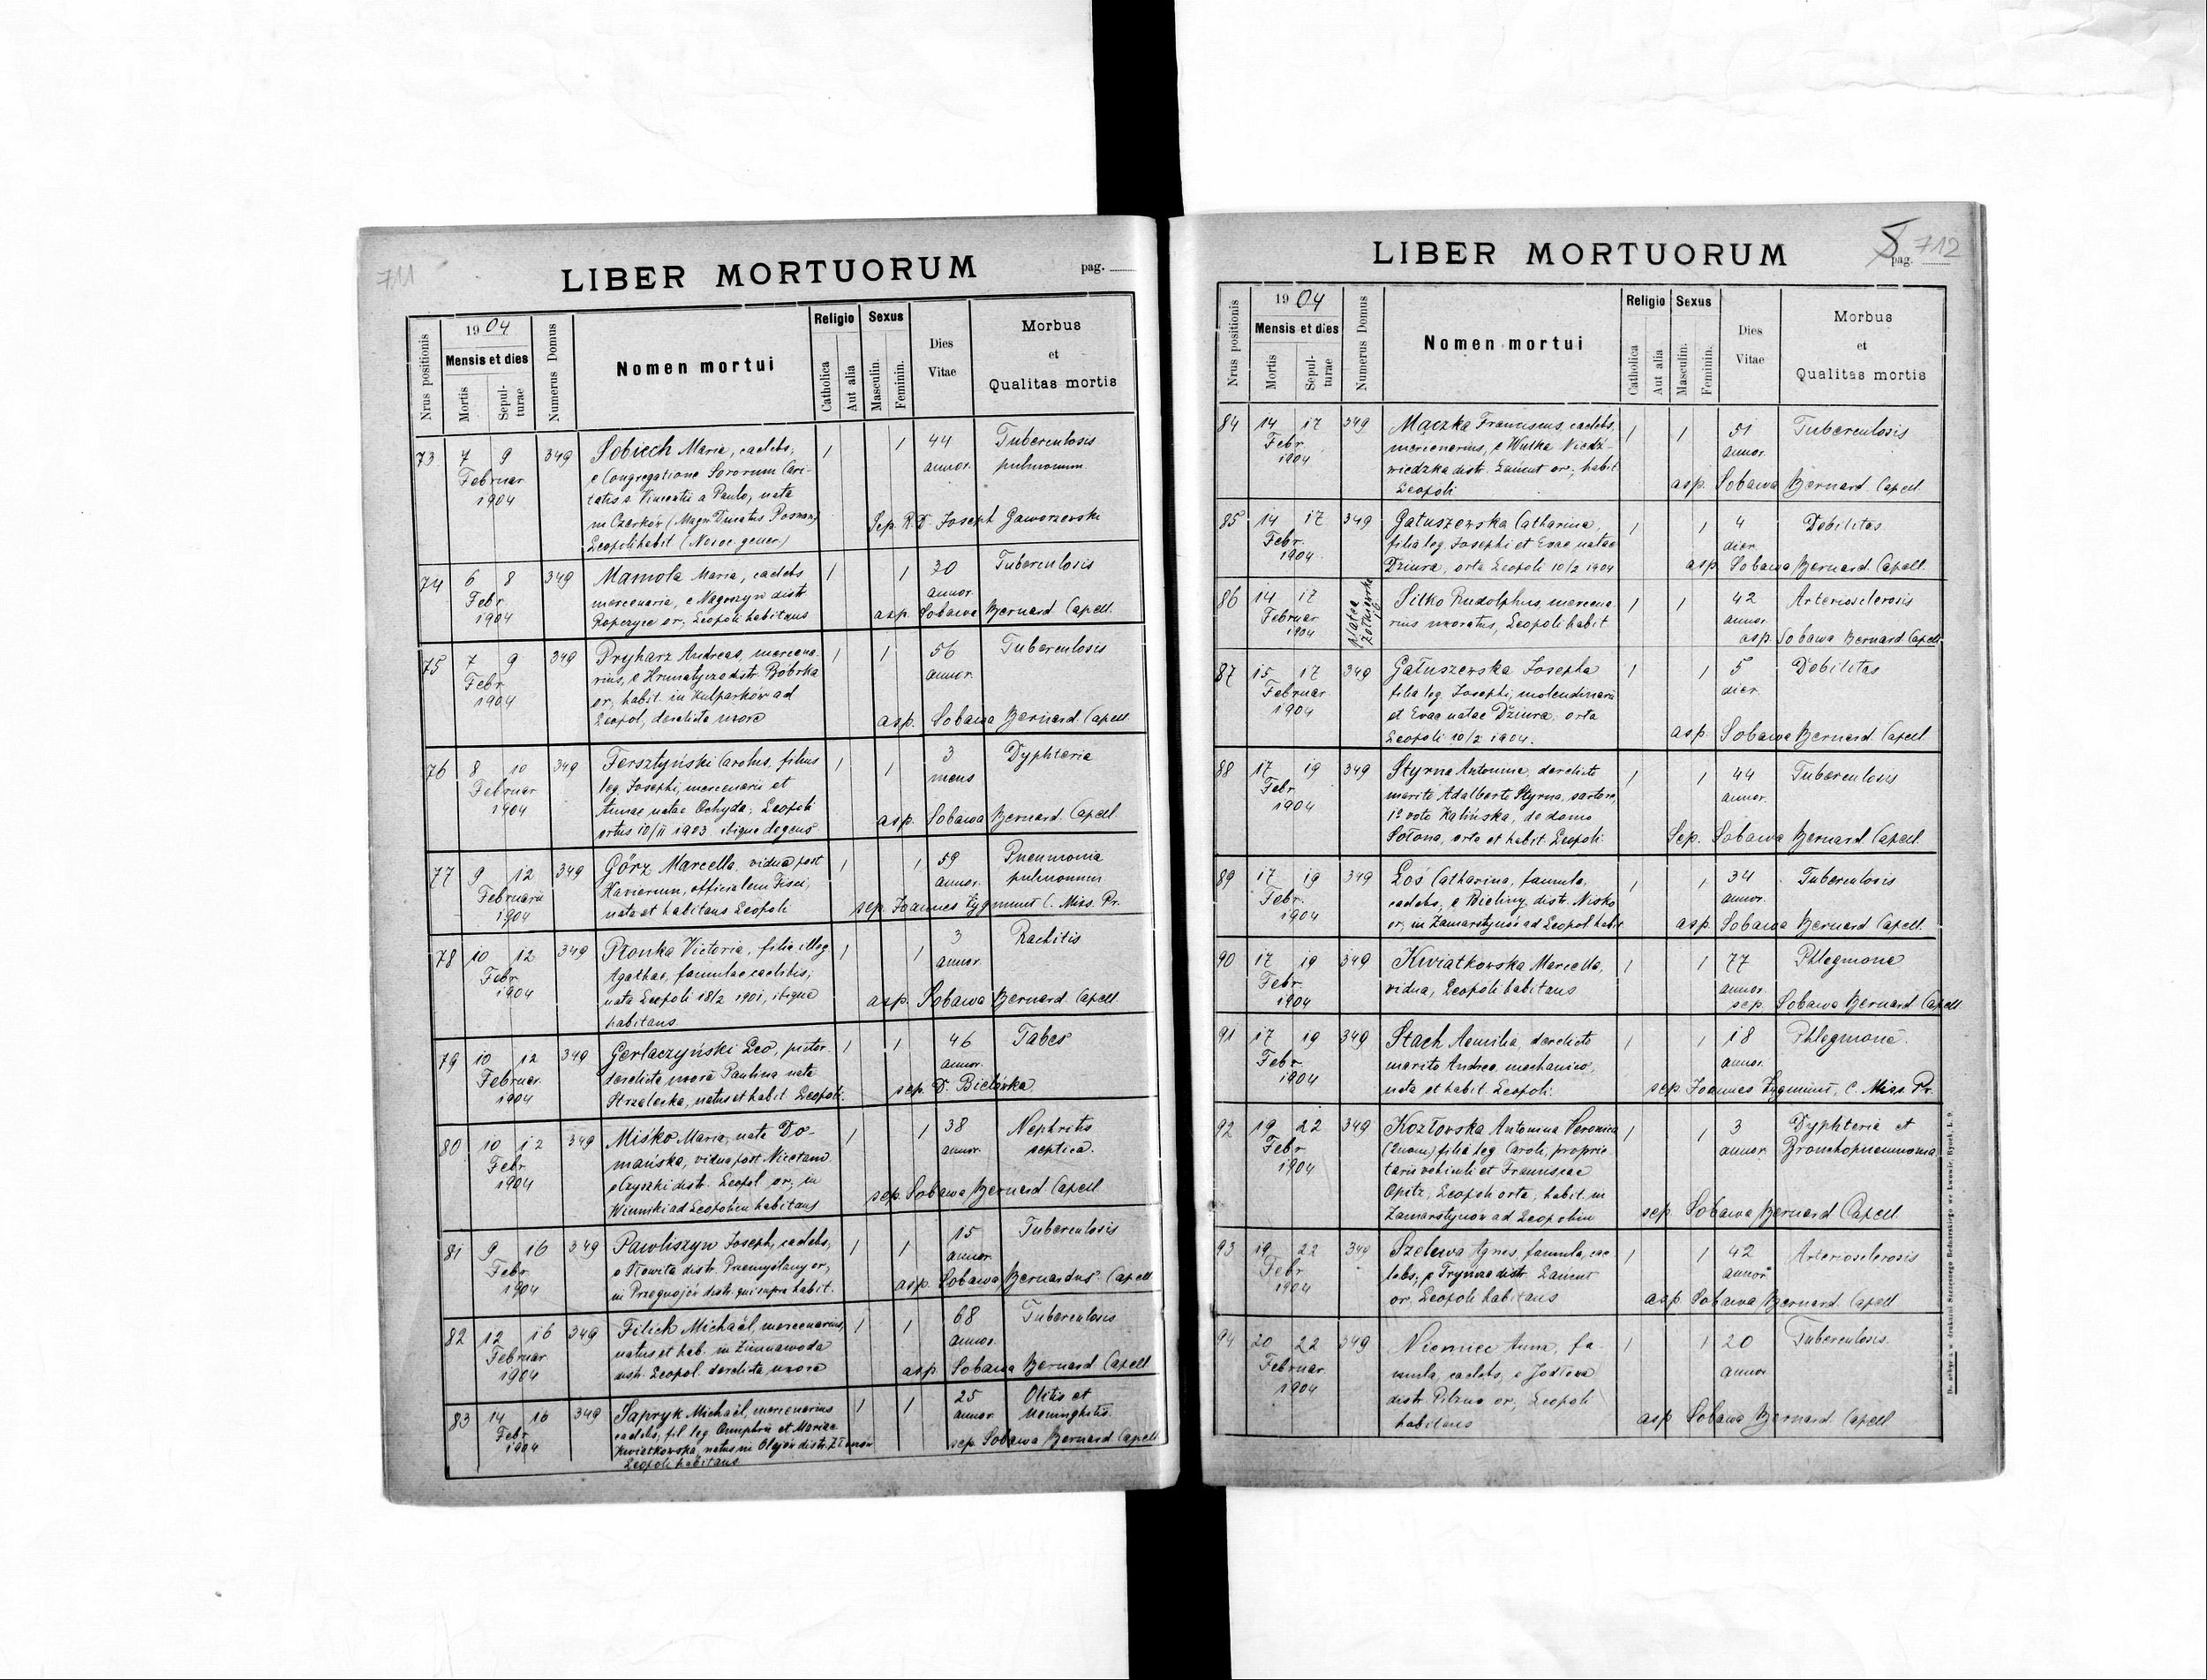 711
LIBER MORTUORUM
pag.
Nrus positionis
1904
Mensis et dies
Mortis
Sepulturae
Numerus Domus
Nomen mortui
Religio
Catholica
Aut alia
Sexus
Masculin.
Feminin.
Dies
Vitae
Morbus
et
Qualitas mortis
73 7 9 349 Sobiech Maria, caelebs, 1 1 44 Tuberculosis
Februar e Congregatione Sororum Cari- annor. pulmonum
1904 tatis s. Vincentii a Paulo, nata
in Czarków (Magn Ducatus Posnan) Sep. R.D. Joseph Gaworzewski
Leopoli habit (Nosoc. gener.)
74 6 8 349 Mamola Maria, caelebs 1 1 30 Tuberculosis
Febr mercenaria, e Nagoszyn distr annor.
1904 Ropczyce or, Leopoli habitans asp. Sobawa Bernard. Capell.
75 7 9 349 Pryharz Andreas, mercena- 1 1 56 Tuberculosis
Febr. rius, e distr. Bóbrka annor.
1904 or, habit. in Kulparków ad
Leopol, derelicta uxore asp. Sobawa Bernard. Capell.
76 8 10 349 Fersztyński Carolus, filius 1 1 3 Dyphteria
Februar leg. Josephi, mercenarii et mens
1904 Annae natae Ochyda, Leopoli
ortus 10/11 1903 ibique degens asp. Sobawa Bernard Capell.
77 9 12 349 Görz Marcella vidua post 1 1 59 Pneumonia
Februarii officialem Fisci, annor. pulmonum
1904 nata et habitans Leopoli sep. Joannes Zygmunt C. Miss. Pr.
78 10 12 349 Płonka Victoria, filia illeg. 1 1 3 Rachitis
Febr Agathae, famulae caelibis, annor.
1904 nata Leopoli 18/2 1901, ibique asp. Sobawa Bernard Capell.
habitans
79 10 12 349 Gerlaczyński Leo, pictor 1 1 46 Tabes
Februar. derelicta uxore Paulina nata annor.
1904 Strzelecka, natus et habit Leopoli. sep. D. Bielówka
80 10 12 349 Miśko Maria, nata Do- 1 1 38 Nephritis
Febr mańska, vidua post Nicetam annor. septica.
1904 e Czyszki distr. Leopol or, in
Winniki ad Leopolim habitans sep. Sobawa Bernard. Capell
81 9 16 349 Pawliszyn Joseph, caelebs, 1 1 15 Tuberculosis
Febr. e Słowita distr. Przemyślany or, annor.
1904 in Przegnojów distr. qui supra habit. asp. Sobawa Bernardus Capell
82 12 16 349 Filich Michaël, mercenarius, 1 1 68 Tuberculosis
Februar natus et hab. in Zimnawoda annor.
1904 distr. Leopol. derelicta uxore asp Sobawa Bernard Capell
83 14 16 349 Sapryk Michaël, mercenarius 1 1 25 Otitis et
Febr caelebs, fil. leg. Onuphrii et Mariae annor. Meninghitis.
1904 Kwiatkowska, natus in Olejów distr. Złoczów sep. Sobawa Bernard. Capell
Leopoli habitans
712
LIBER MORTUORUM
pag.
Nrus positionis
1904
Mensis et dies
Mortis
Sepulturae
Numerus Domus
Nomen mortui
Religio
Catholica
Aut alia
Sexus
Masculin.
Feminin.
Dies
Vitae
Morbus
et
Qualitas mortis
84 14 17 349 Mączka Franciscus, caelebs, 1 1 51 Tuberculosis
Febr mercenarius, e Wulka Niedź- annor.
1904 wiedzka distr. Łańcut or., habit
Leopoli asp. Sobawa Bernard. Capell.
85 14 17 349 Gałuszewska Catharina, 1 1 4 Debilitas
Febr. filia leg. Josephi et Evae natae dier.
1904 Dziura, orta Leopoli 10/2 1904 asp. Sobawa Bernard. Capell.
86 14 17 platea Żołkiewska 16 Sitko Rudolphus, mercena- 1 1 42 Arteriosclerosis
Februar rius uxoratus, Leopoli habit annor.
1904 asp. Sobawa Bernard Capell.
87 15 17 349 Gałuszewska Josepha 1 1 5 Debilitas
Februar. filia leg. Josephi, molendinarii dier.
1904 et Evae natae Dziura, orta
Leopoli 10/2 1904. asp. Sobawa Bernard Capell
88 17 19 349 Styrna Antonina, derelicto 1 1 44 Tuberculosis
Febr marito Adalberto Styrna, sartore, annor.
1904 1º voto Kalińska, de domo
Sołona, orta et habit. Leopoli. Sep. Sobawa Bernard Capell.
89 17 19 349 Łoś Catharina, famula, 1 1 34 Tuberculosis
Febr. caelebs, e Bieliny distr. Nisko annor.
1904 or, in Zamarstynów ad Leopol habit. asp. Sobawa Bernard Capell.
90 17 19 349 Kwiatkowska Marcella, 1 1 77 Phlegmone
Febr. vidua, Leopoli habitans annor.
1904 sep. Sobawa Bernard Capell
91 17 19 349 Stach Aemilia, derelicto 1 1 18 Phlegmone.
Febr. marito Andrea, mechanico, annor.
1904 nata et habit Leopoli. sep. Joannes Zygmunt, C. Miss. Pr.
92 19 22 349 Kozłowska Antonina Veronica 1 1 3 Dyphteria et
Febr (2nom) filia leg Caroli, proprie- annor. Bronchopneumonia
1904 tarii vehiculi et Franciscae
Opitz, Leopoli orta, habit. in
Zamarstynów ad Leopolim sep Sobawa Bernard Capell.
93 19 22 349 Szelewa Agnes, famula, cae- 1 1 42 Arteriosclerosis
Febr lebs, e Tryncza distr. Łańcut annor
1904 or, Leopoli habitans asp Sobawa Bernard. Capell
94 20 22 349 Niemiec Anna, fa- 1 1 20 Tuberculosis.
Februar. mula, caelebs, e Jodłowa annor
1904 distr Pilzno or, Leopoli
habitans asp Sobawa Bernard Capell